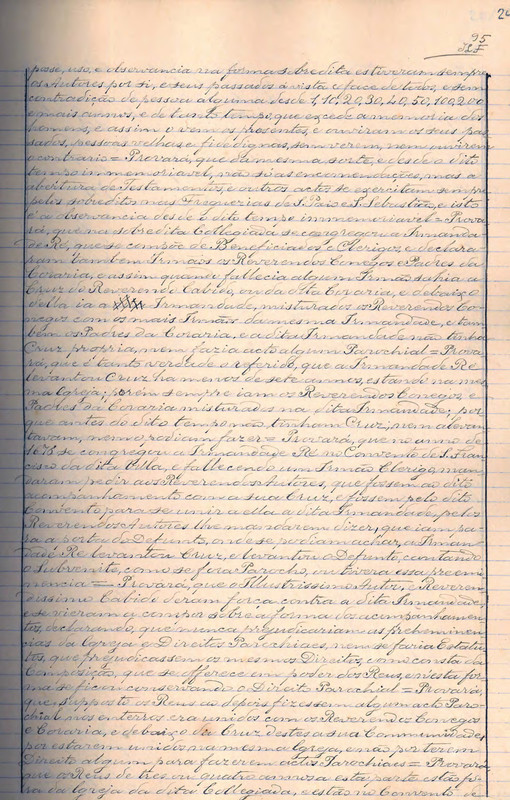 95
posse, uso, e observancia na forma sobredita estiveram sempre
os Autores por si, e seus passados á vista e face de todos, e sem
contradição de pessoa alguma desde 1, 10, 20, 30, 40, 50, 100, 200
e mais annos, e de tanto tempo, que excede a memoria dos
homens, e assim o vem os presentes, e ouviram os seus pas-
sados, pessoas velhas e fidedignas, sem verem, nem ouvirem
o contrario = Provará, que da mesma sorte, e desde o dito
tempo immemoriavel, não só as encommendações, mas a
abertura de Testamentos, e outros actos se exercitam sempre
pelos sobreditos nas Freguezias de S. Paio e S. Sebastião, e isto
é a observancia desde o dito tempo immemoriavel = Prova-
rá, que na sobredita Collegiada se congregou a Irmanda-
de Ré, que se compõe de Beneficiados e Clerigos, e declara-
ram tambem Irmãos os Reverendos Conegos e Padres da
Coraria, e assim quando fallecia algum Irmão sahia a
Cruz do Reverendo Cabido, ou da dita Coraria, e debaixo
d'ella ia a Irmandade, misturados os Reverendos Co-
negos com os mais Irmãos da mesma Irmandade, e tam-
bem os Padres da Coraria, e a dita Irmandade não tinha
Cruz propria, nem fazia acto algum Parochial = Prova-
rá, que é tanto verdade o referido, que a Irmandade Ré
levantou Cruz ha menos de sete annos, estando na mes-
ma Igreja; porém sempre iam os Reverendos Conegos, e
Padres da Coraria misturados na dita Irmandade; por-
que antes do dito tempo não tinham Cruz, nem a levan-
tavam, nem o podiam fazer = Provará, que no anno de
1678 se congregou a Irmandade Ré no Convento de S. Fran-
cisco da dita Villa, e fallecendo um Irmão Clerigo, man-
daram pedir aos Reverendos Autores, que fossem ao dito
acompanhamento com a sua Cruz, e fossem pelo dito
Convento para se unir a ella a dita Irmandade, e pelos
Reverendos Autores lhe mandarem dizer, que iam pa-
ra a porta do Defunto, onde se podiam achar, a Irman-
dade Ré levantou Cruz, e levantou o Defunto, cantando
o Subvenite, como se fora Parocho, ou tivera essa preemi-
nencia = Provará, que o Illustrissimo Autor, e Reveren-
dissimo Cabido deram força contra a dita Irmandade,
e se vieram a compor sobre a forma dos acompanhamen-
tos, declarando, que nunca prejudicariam as preheminen-
cias da Igreja e Direitos Parochiaes, nem se faria Estatu-
tos, que prejudicassem os mesmos Direitos, como consta da
Composição, que se offerece em poder dos Reus, e n'esta for-
ma se ficou conservando o Direito Parochial = Provará,
que supposto os Reus ao depois fizessem algum acto Paro-
chial nos enterros era unidos com os Reverendos Conegos
e Coraria, e debaixo da Cruz d'estes, a sua Communidade,
por estarem unidos na mesma Igreja, e não por terem
Direito algum para fazerem actos Parochiaes = Provará
que os Reus de tres, ou quatro annos a esta parte estão fo-
ra da Igreja da dita Collegiada, e estão no Convento de